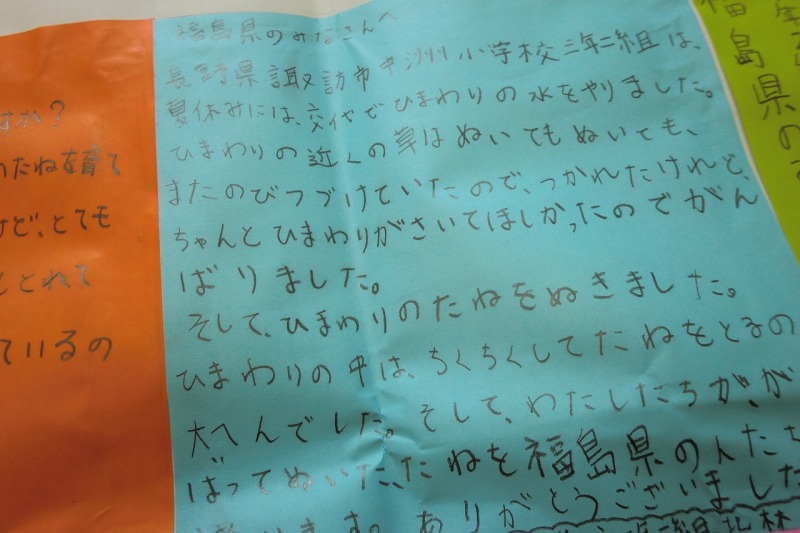 すか?
のたねを育て
けど、とても
ととれて
ているの
福島県のみなさんへ
長野県諏訪市中洲小学校三年二組は、
夏休みには、交代でひまわりの水をやりました。
ひまわりの近くの草はぬいてもぬいても、
またのびつづけていたので、つかれたけれど、
ちゃんとひまわりがさいてほしかったのでがん
ばりました。
そして、ひまわりのたねをぬきました。
ひまわりの中は、ちくちくしてたねをとるの
大へんでした。そして、わたしたちが、が
ばってぬいた、たねを福島県の人たち
ます。ありがとうございました
二組北林
福島県の